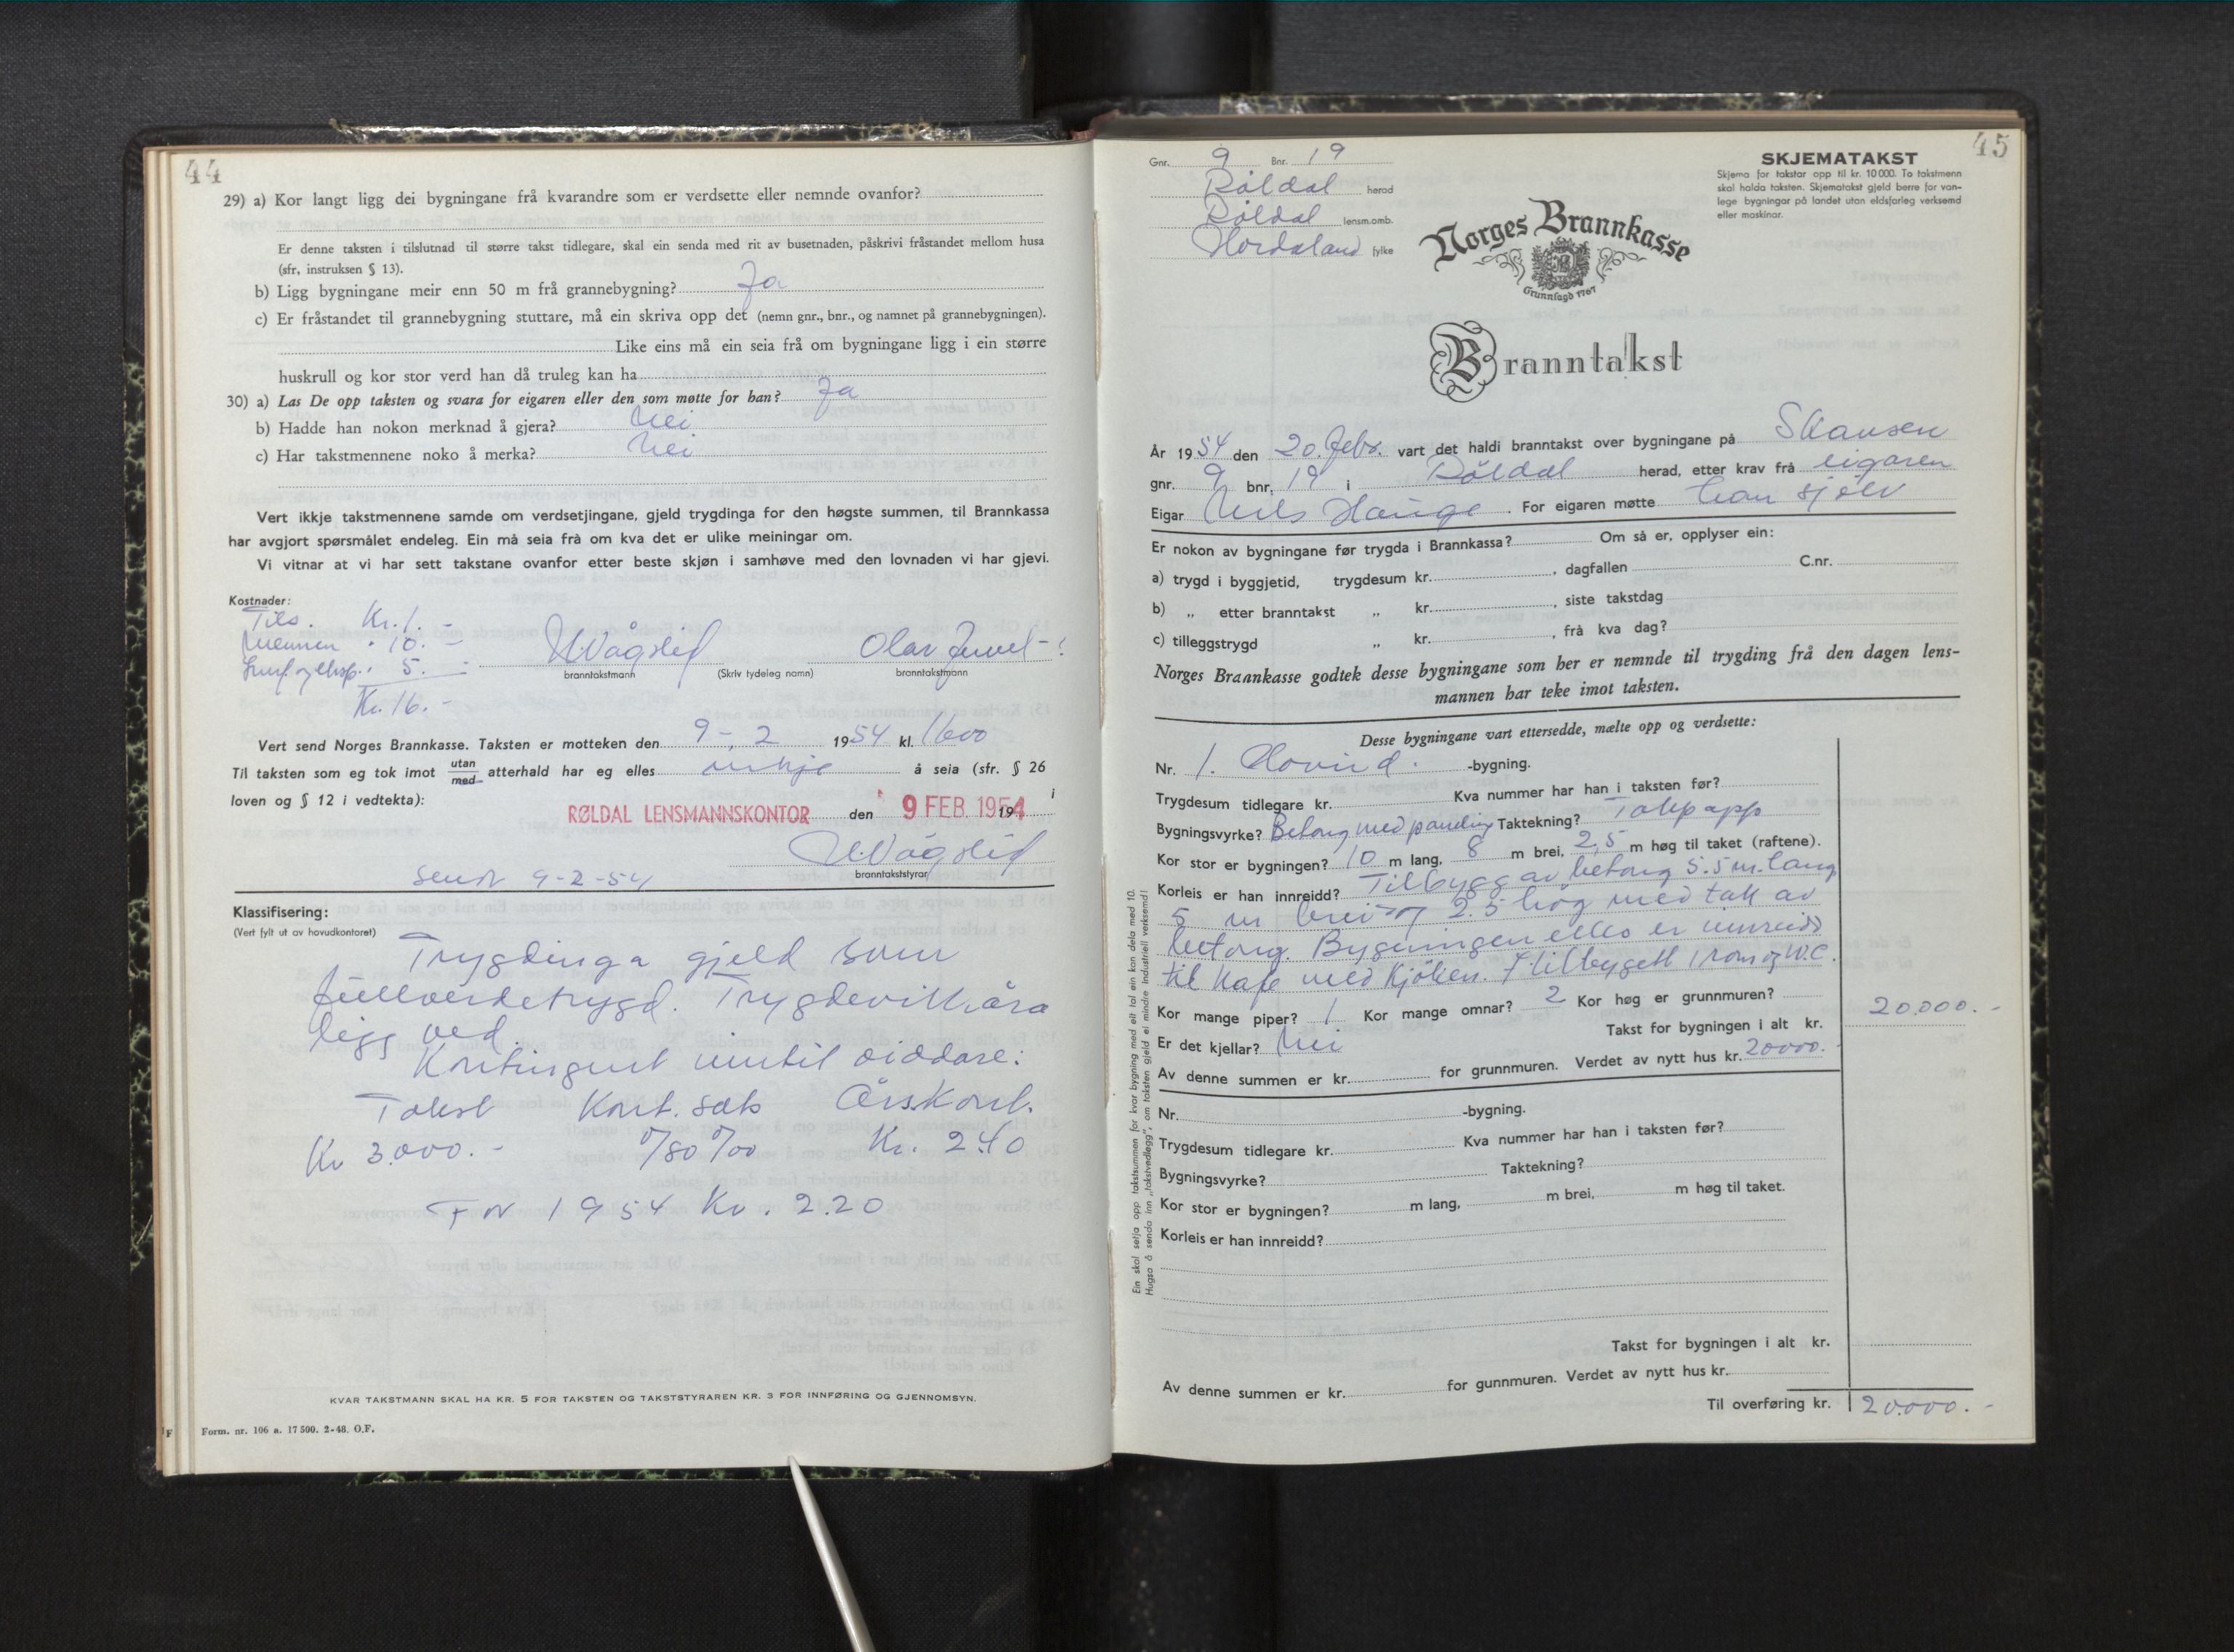 44
29) a) Kor langt ligg dei bygningane frå kvarandre som er verdsette eller nemnde ovanfor?
Er denne taksten i tilslutnad til større takst tidlegare, skal ein senda med rit av busetnaden, påskrivi fråstandet mellom husa
(sfr, instruksen § 13).
b) Ligg bygningane meir enn 50 m frå grannebygning? Ja
c) Er fråstandet til grannebygning stuttare, må ein skriva opp det (nemn gnr., bnr., og namnet på grannebygningen).
Like eins må ein seia frå om bygningane ligg i ein større
huskrull og kor stor verd han då truleg kan ha
30) a) Las De opp taksten og svara for eigaren eller den som møtte for han? Ja
b) Hadde han nokon merknad å gjera? Nei
c) Har takstmennene noko å merka? Nei
Vert ikkje takstmennene samde om verdsetjingane, gjeld trygdinga for den høgste summen, til Brannkassa
har avgjort spørsmålet endeleg. Ein må seia frå om kva det er ulike meiningar om.
Vi vitnar at vi har sett takstane ovanfor etter beste skjøn i samhøve med den lovnaden vi har gjevi.
Kostnader:
Tils. Kr. 1. -
Mennen " 10. -
5. -
Kr. 16. -
Vågslid Olav Juvet
branntakstmann (Skriv tydeleg namn) branntakstmann
Vert send Norges Brannkasse. Taksten er motteken den 9-. 2 1954 kl. 1600
Til taksten som eg tok imot utan/med atterhald har eg elles inkje å seia (sfr. § 26 i
loven og § 12 i vedtekta):
RØLDAL LENSMANNSKONTOR den 9 FEB. 1954 19
Vågslid
branntakststyrar
Sendt 9-2-54
Klassifisering:
(Vert fylt ut av hovudkontoret)
Trygdinga gjeld som
fullverdetrygd. Trygdevilkåra
ligg ved.
Kontingent inntil viddare:
Takst Kont. sats Årskont.
Kr 3.000. - 0/80 0/00 Kr. 2.40
For 1954 Kr. 2.20
KVAR TAKSTMANN SKAL HA KR. 5 FOR TAKSTEN OG TAKSTSTYRAREN KR. 3 FOR INNFØRING OG GJENNOMSYN.
F Form. nr. 106 a. 17 500. 2-48. O.F.
45
Gnr. 9 Bnr. 19
Röldal herad
Röldal lensm.omb.
Hordaland fylke
SKJEMATAKST
Skjema for takstar opp til kr. 10 000. To takstmenn
skal halda taksten. Skjematakst gjeld berre for van-
lege bygningar på landet utan eldsfarleg verksemd
eller maskinar.
Norges Brannkasse
Grunnlagd 1767
Branntakst
År 1954 den 20. Febr. vart det haldi branntakst over bygningane på Skansen
gnr. 9 bnr. 19 i Röldal herad, etter krav frå eigaren
Eigar Nils Hauge. For eigaren møtte han sjölv
Er nokon av bygningane før trygda i Brannkassa? Om så er, opplyser ein:
a) trygd i byggjetid, trygdesum kr. , dagfallen C.nr.
b) „ etter branntakst „ kr. , siste takstdag
c) tilleggstrygd „ kr. , frå kva dag?
Norges Brannkasse godtek desse bygningane som her er nemnde til trygding frå den dagen lens-
mannen har teke imot taksten.
Desse bygningane vart ettersedde, mælte opp og verdsette:
Nr. 1. Hovud. -bygning.
Trygdesum tidlegare kr. Kva nummer har han i taksten før?
Bygningsvyrke? Betong med paneling Taktekning? Takpapp
Kor stor er bygningen? 10 m lang, 8 m brei, 2,5 m høg til taket (raftene).
Korleis er han innreidd? Tilbygg av betong 5.5 m. lang
5 m brei og 2.5 hög med tak av
betong. Bygningen elles er innreidd
til Kafe med Kjöken. I tilbygett 1 rom og W.C.
Kor mange piper? 1 Kor mange omnar? 2 Kor høg er grunnmuren?
Er det kjellar? Nei Takst for bygningen i alt kr. 20.000. -
Av denne summen er kr. for grunnmuren. Verdet av nytt hus kr. 20000. -
Nr. -bygning.
Trygdesum tidlegare kr. Kva nummer har han i taksten før?
Bygningsvyrke? Taktekning?
Kor stor er bygningen? m lang, m brei, m høg til taket.
Korleis er han innreidd?
Takst for bygningen i alt kr.
Av denne summen er kr. for gunnmuren. Verdet av nytt hus kr.
Til overføring kr. 20.000. -
Ein skal setja opp takstsummen for kvar bygning med eit tal ein kan dela med 10.
Hugsa å senda inn „takstvedlegg", om taksten gjeld ei mindre industriell verksemd!